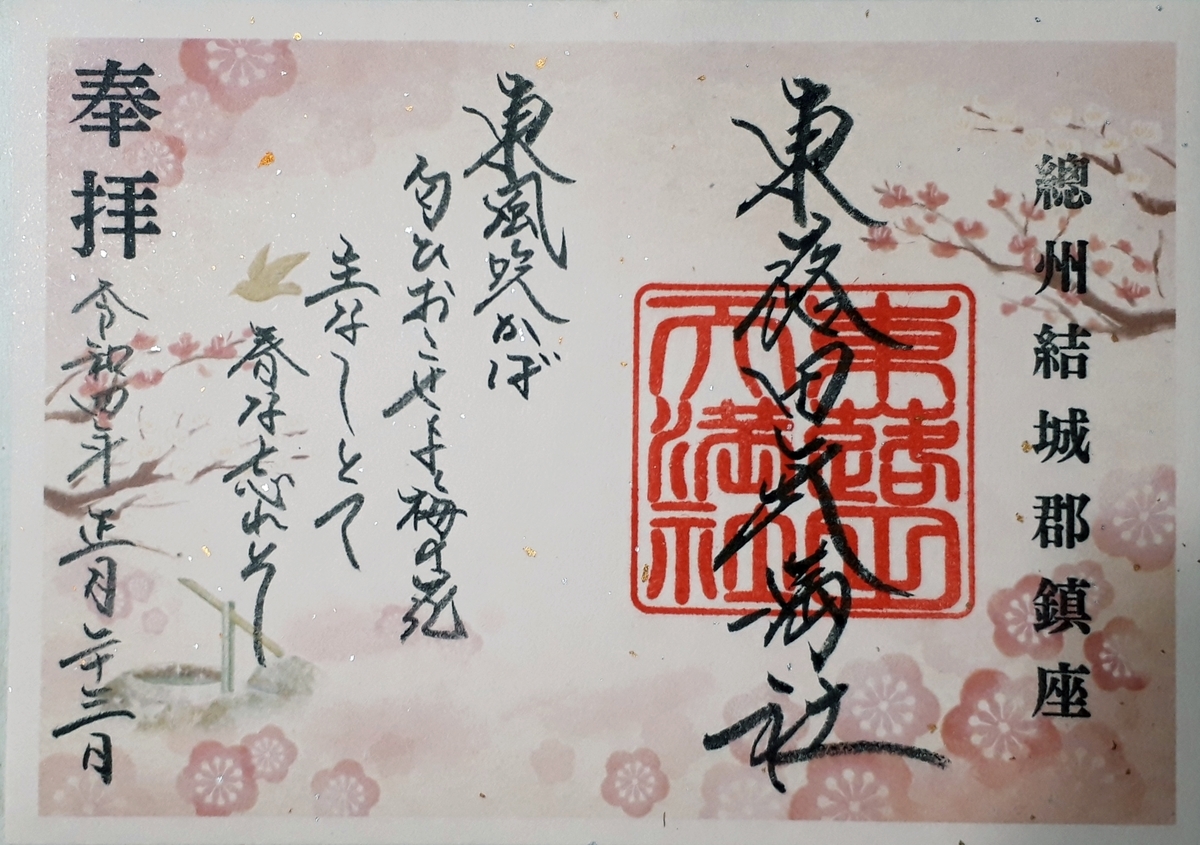 總州結城郡鎮座
東蕗田天満社
東蕗田
天満社
東風吹かば
匂ひおこせよ梅の花
主なしとて
春な忘れそ
奉拝
令和四年正月二十三日